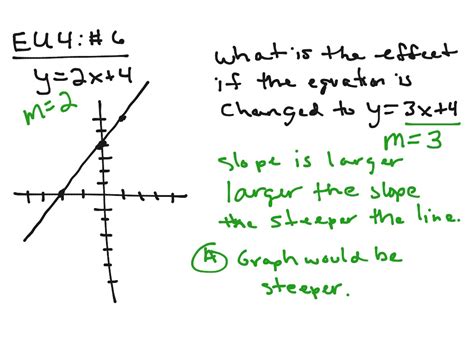 EU4:#6
y=2x+4
m=2
What is the effect
if the equation is
changed to y=3x+4
m=3
slope is larger
larger the slope
the steeper the line.
A Graph would be
steeper.